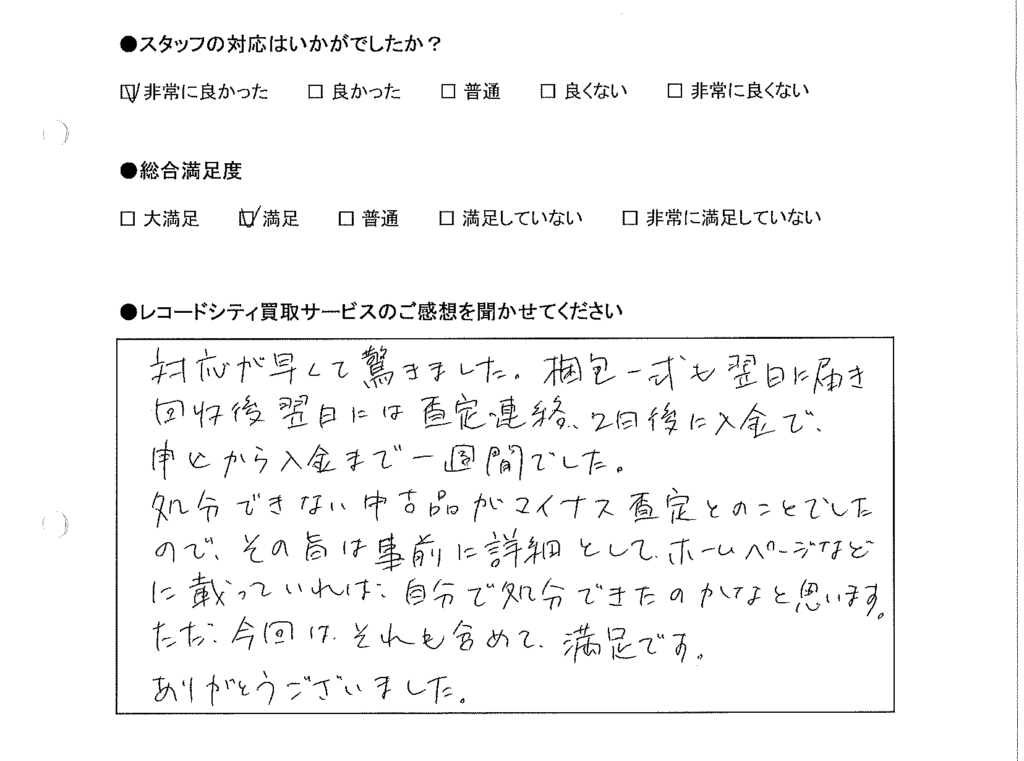 ●スタッフの対応はいかがでしたか？
☑非常に良かった　□ 良かった　□ 普通　□ 良くない　□ 非常に良くない
●総合満足度
□ 大満足　☑満足　□ 普通　□ 満足していない　□ 非常に満足していない
●レコードシティ買取サービスのご感想を聞かせてください
対応が早くて驚きました。梱包一式も翌日に届き
回収後翌日には査定連絡、2日後に入金で、
申込から入金まで一週間でした。
処分できない中古品がマイナス査定とのことでした
ので、その旨は事前に詳細として、ホームページなど
に載っていれば、自分で処分できたのかなと思います。
ただ、今回は、それも含めて、満足です。
ありがとうございました。